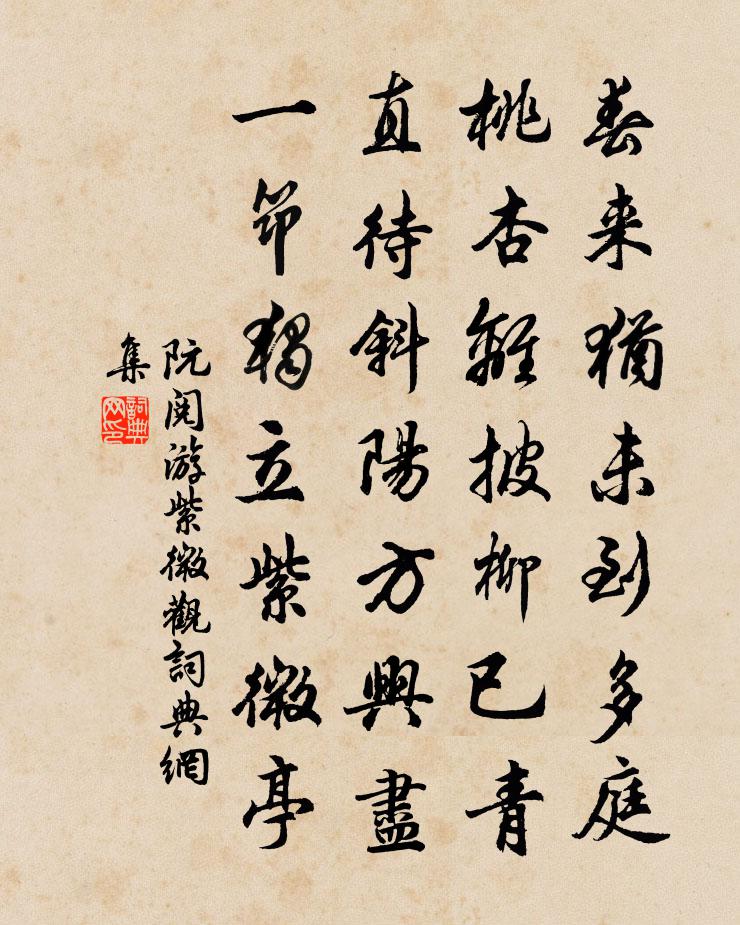 春来猶未到多庭
桃杏離披柳已青
直待斜陽方興盡
一筇獨立紫微亭
阮閱游紫微觀詞典網
集
詞典
网印